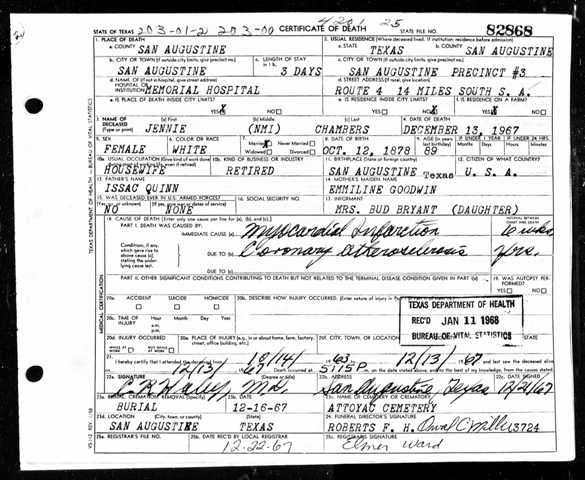 4201 25
STATE OF TEXAS 203-01-2 203-00 CERTIFICATE OF DEATH STATE FILE NO. 82868
1. PLACE OF DEATH 2. USUAL RESIDENCE (Where deceased lived. If institution: residence before admission)
a. COUNTY SAN AUGUSTINE a. STATE TEXAS b. COUNTY SAN AUGUSTINE
b. CITY OR TOWN (If outside city limits, give precinct no.) c. LENGTH OF STAY in 1 b. c. CITY OR TOWN (If outside city limits, give precinct no.)
SAN AUGUSTINE 3 DAYS SAN AUGUSTINE PRECINCT #3
d. NAME OF (If not in hospital, give street address) HOSPITAL OR INSTITUTION MEMORIAL HOSPITAL d. STREET ADDRESS (If rural, give location) ROUTE 4 14 MILES SOUTH S. A.
e. IS PLACE OF DEATH INSIDE CITY LIMITS? YES X NO e. IS RESIDENCE INSIDE CITY LIMITS? YES NO X f. IS RESIDENCE ON A FARM? YES NO
3. NAME OF DECEASED (Type or print) (a) First (b) Middle (c) Last 4. DATE OF DEATH
JENNIE (NMI) CHAMBERS DECEMBER 13, 1967
5. SEX 6. COLOR OR RACE 7. Married Never Married Widowed Divorced 8. DATE OF BIRTH 9. AGE IF UNDER 1 YEAR IF UNDER 24 HRS.
FEMALE WHITE OCT. 12, 1878 89 Months Days Hours Minutes
10a. USUAL OCCUPATION (Give kind of work done during most of working life, even if retired) 10b. KIND OF BUSINESS OR INDUSTRY 11. BIRTHPLACE (State or foreign country) 12. CITIZEN OF WHAT COUNTRY?
HOUSEWIFE RETIRED SAN AUGUSTINE Texas U. S. A.
13. FATHER'S NAME 14. MOTHER'S MAIDEN NAME
ISSAC QUINN EMMILINE GOODWIN
15. WAS DECEASED EVER IN U.S. ARMED FORCES? 16. SOCIAL SECURITY NO. 17. INFORMANT
NO NONE MRS. BUD BRYANT (DAUGHTER)
18. CAUSE OF DEATH [Enter only one cause per line for (a), (b), and (c).] INTERVAL BETWEEN ONSET AND DEATH
PART I. DEATH WAS CAUSED BY: IMMEDIATE CAUSE (a) Myocardial Infarction
Conditions, if any, which gave rise to above cause (a), stating the underlying cause last. DUE TO (b) Coronary Atherosclerosis Yrs.
DUE TO (c)
PART II. OTHER SIGNIFICANT CONDITIONS CONTRIBUTING TO DEATH BUT NOT RELATED TO THE TERMINAL DISEASE CONDITION GIVEN IN PART I(a) 19. WAS AUTOPSY PERFORMED? YES NO
20a. ACCIDENT SUICIDE HOMICIDE 20b. DESCRIBE HOW INJURY OCCURRED.
20c. TIME OF INJURY Hour Month Day Year a.m. p.m.
TEXAS DEPARTMENT OF HEALTH
REC'D JAN 11 1968
BUREAU OF VITAL STATISTICS
20d. INJURY OCCURRED WHILE AT WORK NOT WHILE AT WORK 20e. PLACE OF INJURY (e.g., in or about home, farm, factory, street, office building, etc.) 20f. CITY, TOWN, OR LOCATION
21. I hereby certify that I attended the deceased from 10/14/ 1963 12/13/ 1967 and last saw the deceased alive
12/13/ 1967 Death occurred at 5:15P m. on the date stated above, and to the best of my knowledge, from the causes stated.
22a. SIGNATURE (Degree or title) 22b. ADDRESS 22c. DATE SIGNED
M.D. San Augustine, Texas 12/21/67
23a. BURIAL, CREMATION, REMOVAL (Specify) 23b. DATE 23c. NAME OF CEMETERY OR CREMATORY
BURIAL 12-16-67 ATTOYAC CEMETERY
23d. LOCATION (City, town, or county) (State) 24. FUNERAL DIRECTOR'S SIGNATURE
SAN AUGUSTINE TEXAS ROBERTS F. H. Orval C Miller 3724
25a. REGISTRAR'S FILE NO. 25b. DATE REC'D BY LOCAL REGISTRAR 25c. REGISTRAR'S SIGNATURE
12-22-67 Elmer Ward
TEXAS DEPARTMENT OF HEALTH - BUREAU OF VITAL STATISTICS
MEDICAL CERTIFICATION